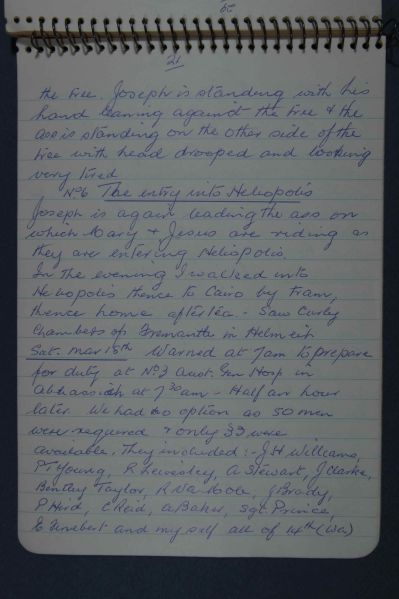 21
the tree. Joseph is standing with his
hand leaning against the tree & the
ass is standing on the other side of the
tree with head drooped and looking
very tired
No 6 The entry into Heliopolis
Joseph is again leading the ass on
which Mary & Jesus are riding as
they are entering Heliopolis.
In the evening I walked into
Heliopolis thence to Cairo by tram,
thence home after tea - Saw Curly
Chambers of Fremantle in Helmieh
Sat. Mar 18th Warned at 7am to prepare
for duty at No 3 Aust. Gen Hosp in
Abbassieh at 7 30 am - Half an hour
later. We had no option as 50 men
were required & only 33 were
available. They included :- J H Williams,
P T Young, R Livesley, A Stewart, J Clarke,
Bentley Taylor, J Brady,
P Hird, C Reid, A Baker, Sgt Prince,
and myself all of 14th (WA)